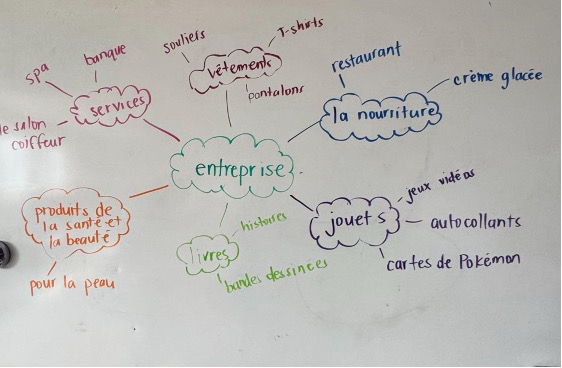 souliers
T-shirts
vêtements
pantalons
banque
spa
services
le salon
coiffeur
restaurant
crème glacée
la nourriture
entreprise
produits de
la santé et
la beauté
pour la peau
livres
histoires
bandes dessinées
jouets
jeux vidéos
autocollants
cartes de Pokémon